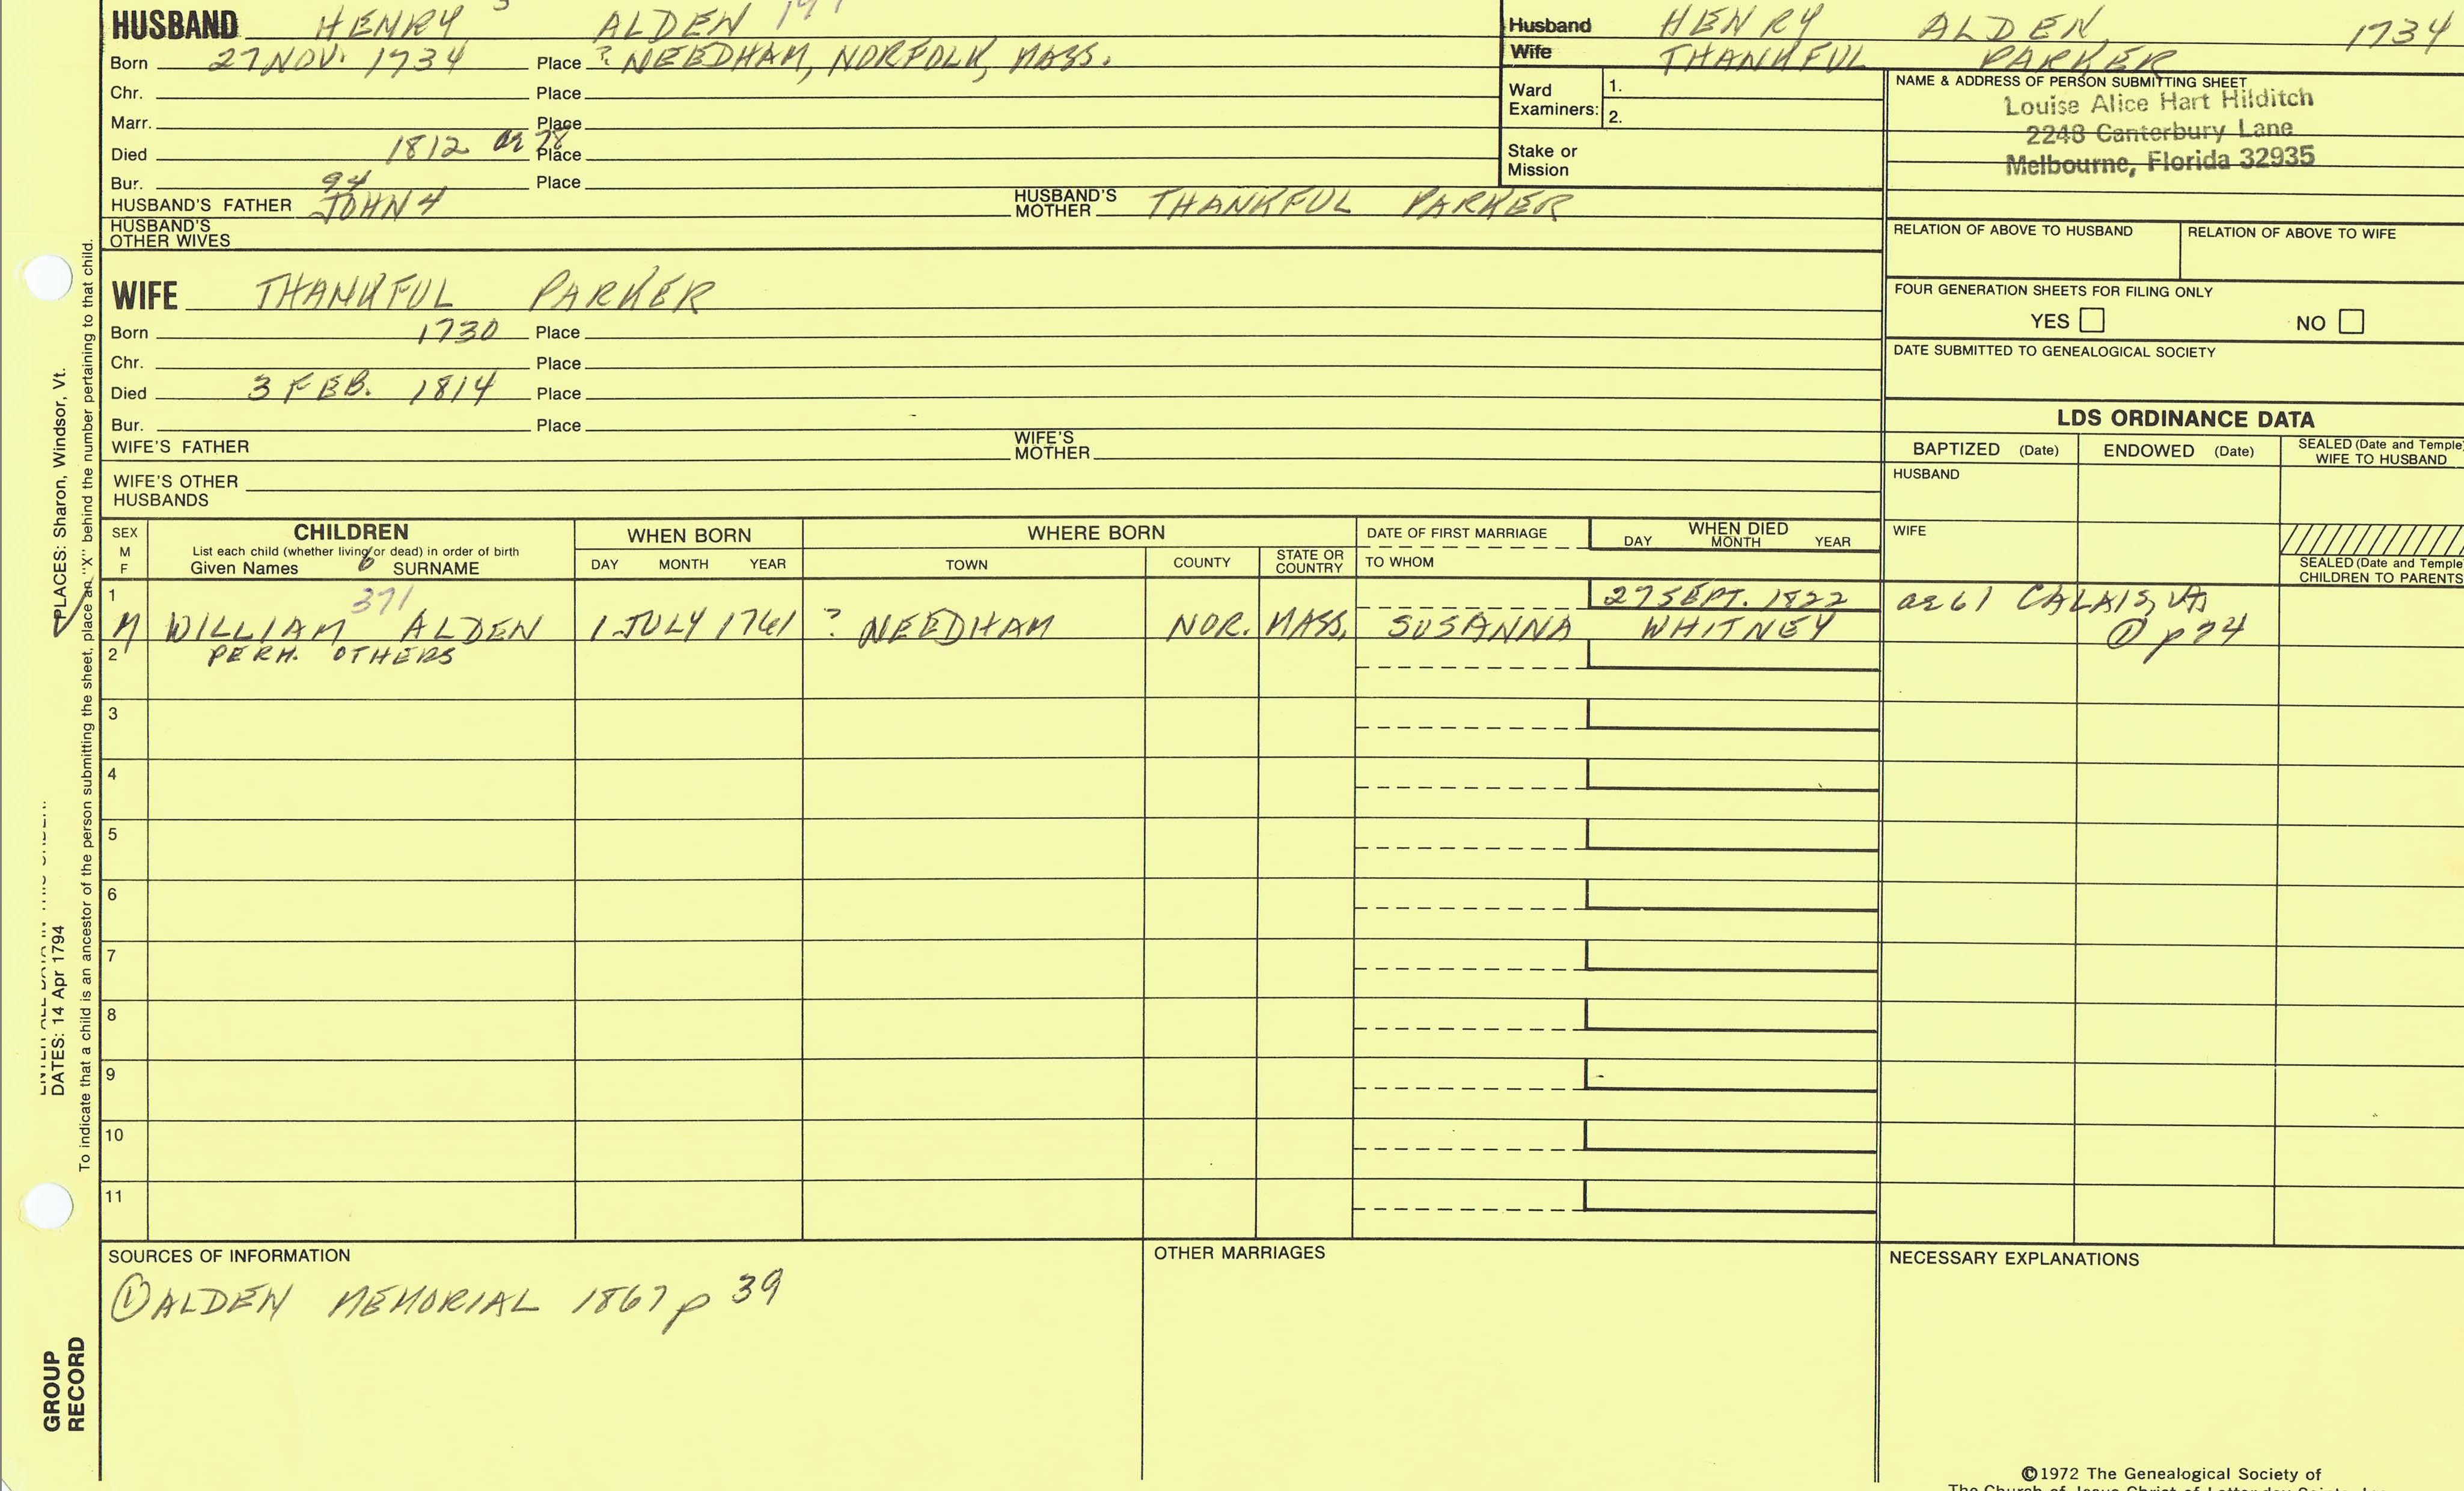 HUSBAND HENRY 5 ALDEN
Born 27 NOV. 1734 Place ? NEEDHAM, NORFOLK, MASS.
Chr. Place
Marr. Place
Died 1812 ae 78 Place
Bur. Place
94
HUSBAND'S FATHER JOHN 4 HUSBAND'S MOTHER THANKFUL PARKER
HUSBAND'S OTHER WIVES
Husband HENRY ALDEN 1734
Wife THANKFUL PARKER
Ward Examiners: 1.
2.
Stake or Mission
NAME & ADDRESS OF PERSON SUBMITTING SHEET
Louise Alice Hart Hilditch
2248 Canterbury Lane
Melbourne, Florida 32935
RELATION OF ABOVE TO HUSBAND RELATION OF ABOVE TO WIFE
FOUR GENERATION SHEETS FOR FILING ONLY
YES NO
DATE SUBMITTED TO GENEALOGICAL SOCIETY
WIFE THANKFUL PARKER
Born 1730 Place
Chr. Place
Died 3 FEB. 1814 Place
Bur. Place
WIFE'S FATHER WIFE'S MOTHER
WIFE'S OTHER HUSBANDS
LDS ORDINANCE DATA
BAPTIZED (Date) ENDOWED (Date) SEALED (Date and Temple) WIFE TO HUSBAND
HUSBAND
WIFE
SEALED (Date and Temple CHILDREN TO PARENTS
SEX M F
CHILDREN
List each child (whether living or dead) in order of birth
Given Names 6 SURNAME
WHEN BORN
DAY MONTH YEAR
WHERE BORN
TOWN COUNTY STATE OR COUNTRY
DATE OF FIRST MARRIAGE
TO WHOM
WHEN DIED
DAY MONTH YEAR
1 371 27 SEPT. 1822 ae 61 CALAIS, Vt.
M WILLIAM ALDEN 1 JULY 1761 ? NEEDHAM NOR. MASS. SUSANNA WHITNEY ① p 74
2 PERH. OTHERS
3
4
5
6
7
8
9
10
11
SOURCES OF INFORMATION
① ALDEN MEMORIAL 1867 p 39
OTHER MARRIAGES
NECESSARY EXPLANATIONS
©1972 The Genealogical Society of
The Church of Jesus Christ of Latter-day Saints
PLACES: Sharon, Windsor, Vt.
DATES: 14 Apr 1794
To indicate that a child is an ancestor of the person submitting the sheet, place an "X" behind the number pertaining to that child.
GROUP
RECORD